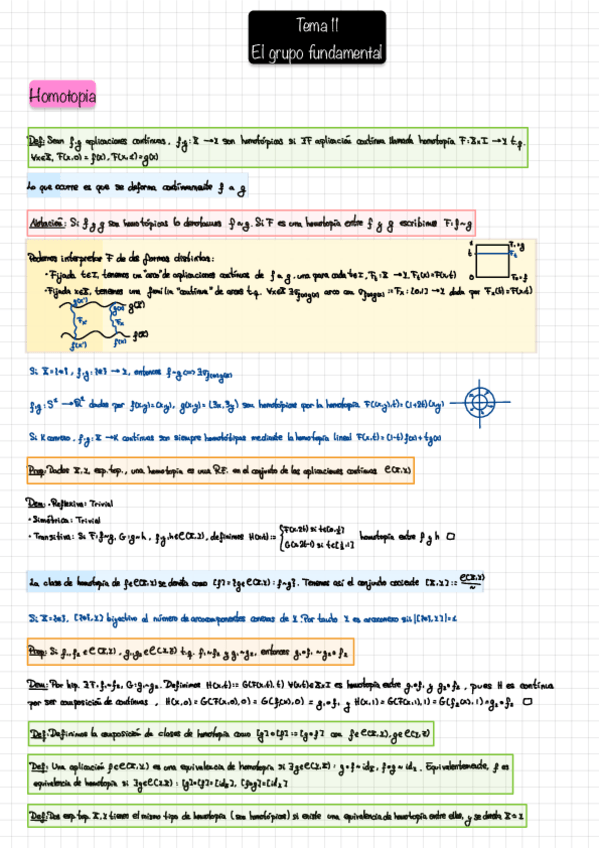 Tema 11
El grupo fundamental
Homotopia
Def: Sean f,g aplicaciones continuas, f,g: X → Y son homotópicas si ∃F aplicación continua llamada homotopia F: X×I → Y t.q.
∀x∈X, F(x,0) = f(x), F(x,1) = g(x)
Lo que ocurre es que se deforma continuamente f a g
Notación: Si f y g son homotópicas lo denotamos f~g. Si F es una homotopia entre f y g escribimos F: f~g
Podemos interpretar F de dos formas distintas:
· Fijado t∈I, tenemos un "arco" de aplicaciones continuas de f a g, una para cada t∈I, Ft: X → Y, Ft(x) = F(x,t)
· Fijado x∈X, tenemos una familia "continua" de arcos t.q. ∀x∈X ∃σf(x)g(x) arco con σf(x)g(x) := Fx: [0,1] → Y dado por Fx(t) = F(x,t)
g(x') g(x) g(X)
Fx' Fx
f(x') f(x) f(X)
1 F1=g
t Ft
0 F0=f
Si X={a}, f,g: {a} → Y, entonces f~g ⟺ ∃σf(a)g(a)
f,g: S¹ → R² dadas por f(x,y)=(x,y), g(x,y)=(3x,3y) son homotópicas por la homotopia F((x,y),t)=(1+2t)(x,y)
Si K convexo, f,g: X → K continuas son siempre homotópicas mediante la homotopia lineal F(x,t)=(1-t)f(x)+tg(x)
Prop: Dados X,Y, esp.top., una homotopia es una R.E. en el conjunto de las aplicaciones continuas C(X,Y)
Dem: · Reflexiva: Trivial
· Simétrica: Trivial
· Transitiva: Si F: f~g, G: g~h, f,g,h∈C(X,Y), definimos H(x,t):= { F(x,2t) si t∈[0,½] G(x,2t-1) si t∈[½,1] homotopia entre f y h □
La clase de homotopia de f∈C(X,Y) se denota como [f]={g∈C(X,Y): f~g}. Tenemos así el conjunto cociente [X,Y]:= C(X,Y)/~
Si X={a}, [{a},Y] biyectivo al número de arcocomponentes conexas de Y. Por tanto Y es arcoconexo sii |[{a},Y]|=1
Prop: Si f1,f2∈C(X,Y), g1,g2∈C(Y,Z) t.q. f1~f2 y g1~g2, entonces g1∘f1 ~ g2∘f2
Dem: Por hip. ∃F: f1~f2, G: g1~g2. Definimos H(x,t):= G(F(x,t),t) ∀(x,t)∈X×I es homotopia entre g1∘f1 y g2∘f2, pues H es continua
por ser composición de continuas, H(x,0)=G(F(x,0),0)=G(f1(x),0)=g1∘f1 y H(x,1)=G(F(x,1),1)=G(f2(x),1)=g2∘f2 □
Def: Definimos la composición de clases de homotopia como [g]∘[f]:=[g∘f] con f∈C(X,Y), g∈C(Y,Z)
Def: Una aplicación f∈C(X,Y) es una equivalencia de homotopia si ∃g∈C(Y,X): g∘f~idX, f∘g~idY. Equivalentemente, f es
equivalencia de homotopia si ∃g∈C(Y,X): [g]∘[f]=[idX], [f∘g]=[idY]
Def: Dos esp.top. X,Y tienen el mismo tipo de homotopia (son homotópicos) si existe una equivalencia de homotopia entre ellos, y se denota X≃Y